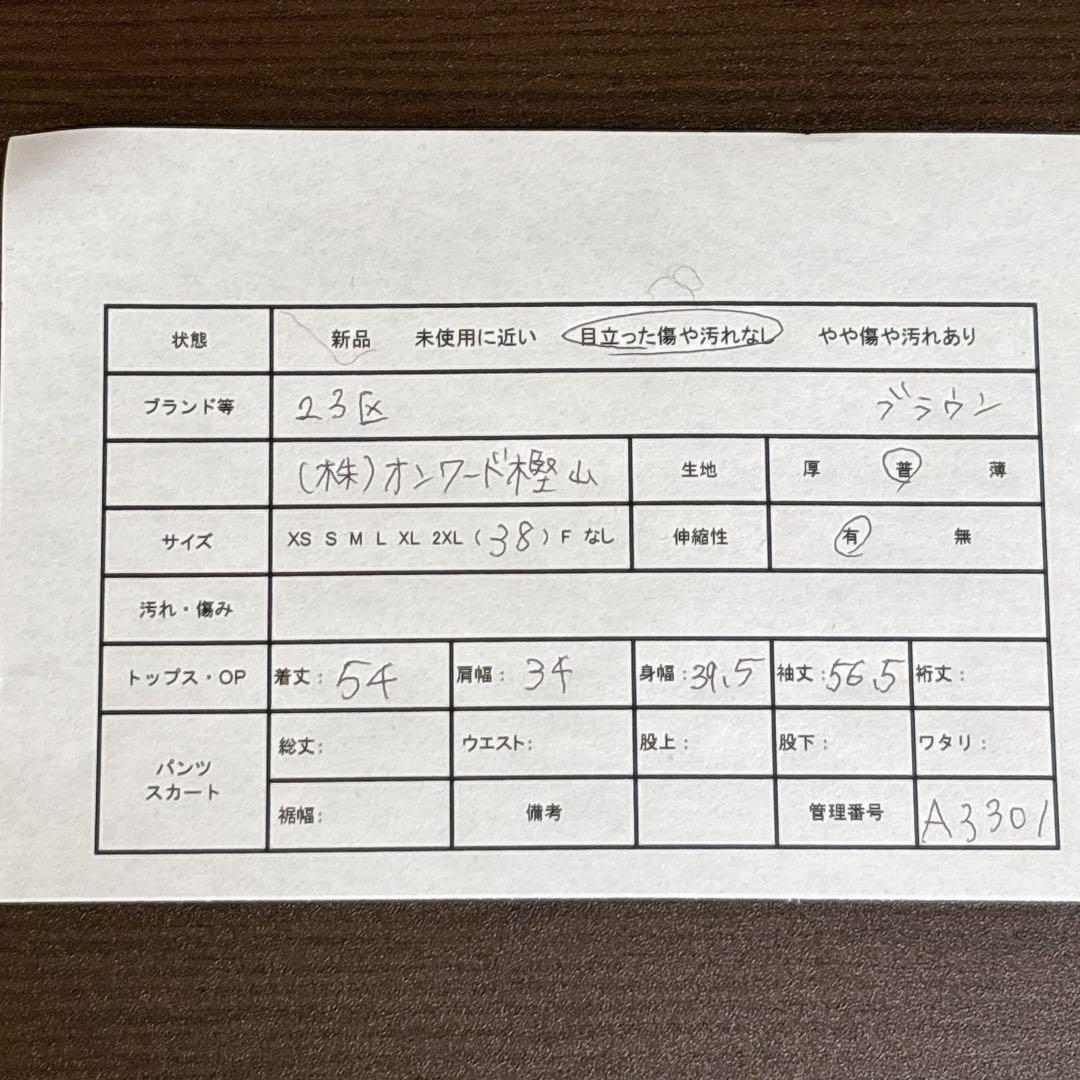 状態 新品 未使用に近い 目立った傷や汚れなし やや傷や汚れあり
ブランド等 23区 ブラウン
(株)オンワード樫山 生地 厚 普 薄
サイズ XS S M L XL 2XL (38) F なし 伸縮性 有 無
汚れ・傷み
トップス・OP 着丈: 54 肩幅: 34 身幅: 39.5 袖丈: 56.5 裄丈:
パンツ スカート
総丈: ウエスト: 股上: 股下: ワタリ:
裾幅: 備考 管理番号 A3301